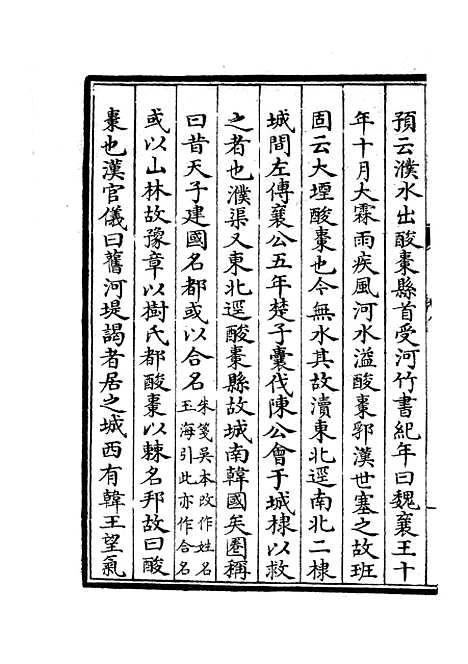 預云濮水出酸棗縣首受河竹書紀年曰魏襄王十
年十月大霖雨疾風河水溢酸棗郛漢世塞之故班
固云大堙酸棗也今無水其故瀆東北逕南北二棣
城間左傳襄公五年楚子囊伐陳公會于城棣以救
之者也濮渠又東北逕酸棗縣故城南韓國矣圈稱
曰昔天子建國名都或以合名朱箋吳本改作姓名玉海引此亦作合名
或以山林故豫章以樹氏都酸棗以棘名邦故曰酸
棗也漢官儀曰舊河堤謁者居之城西有韓王望氣